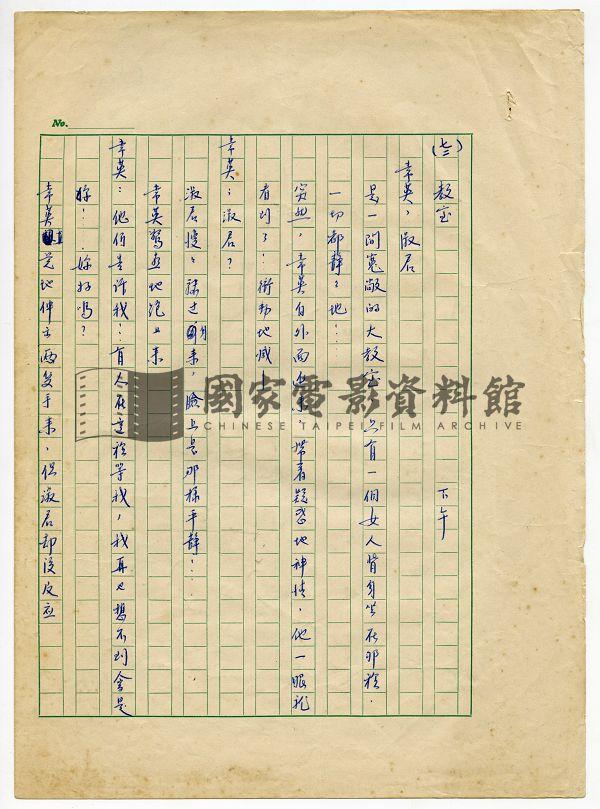 No.
(七三) 教室 下午
幸英，淑君
是一間寬敞的大教室 只有一個女人背身坐在那裡.
一切都靜々地!...
突然，幸英自外面進來，帶着疑惑地神情，他一眼就
看到了! 衝動地喊...
幸英：淑君?
淑君慢々轉过身來，臉上是那樣平靜!...
幸英驚喜地跑上來
幸英：他们告訴我! 有人在這裡等我，我再也想不到會是
妳! .妳好嗎?
幸英 地伸出两隻手來，但淑君却没反应
國家電影資料館
CHINESE TAIPEI FILM ARCHIVE